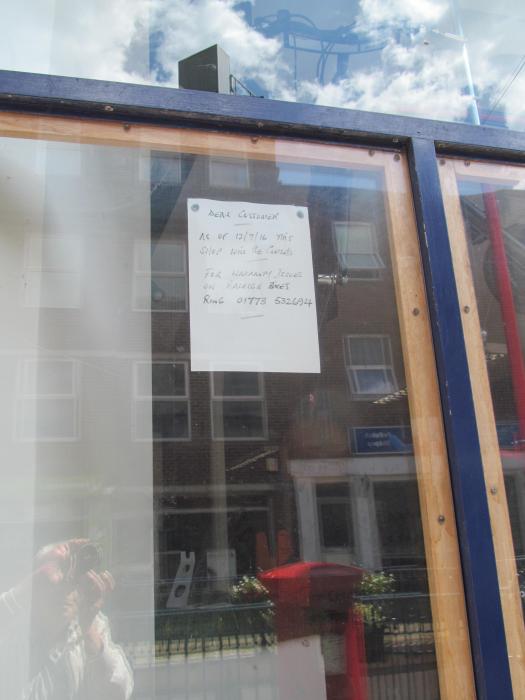 DEAR CUSTOMER
AS OF 12/9/16 THIS
SHOP WILL BE CLOSED
FOR WARRANTY ISSUES
ON RALEIGH BIKES
RING 01773 532694